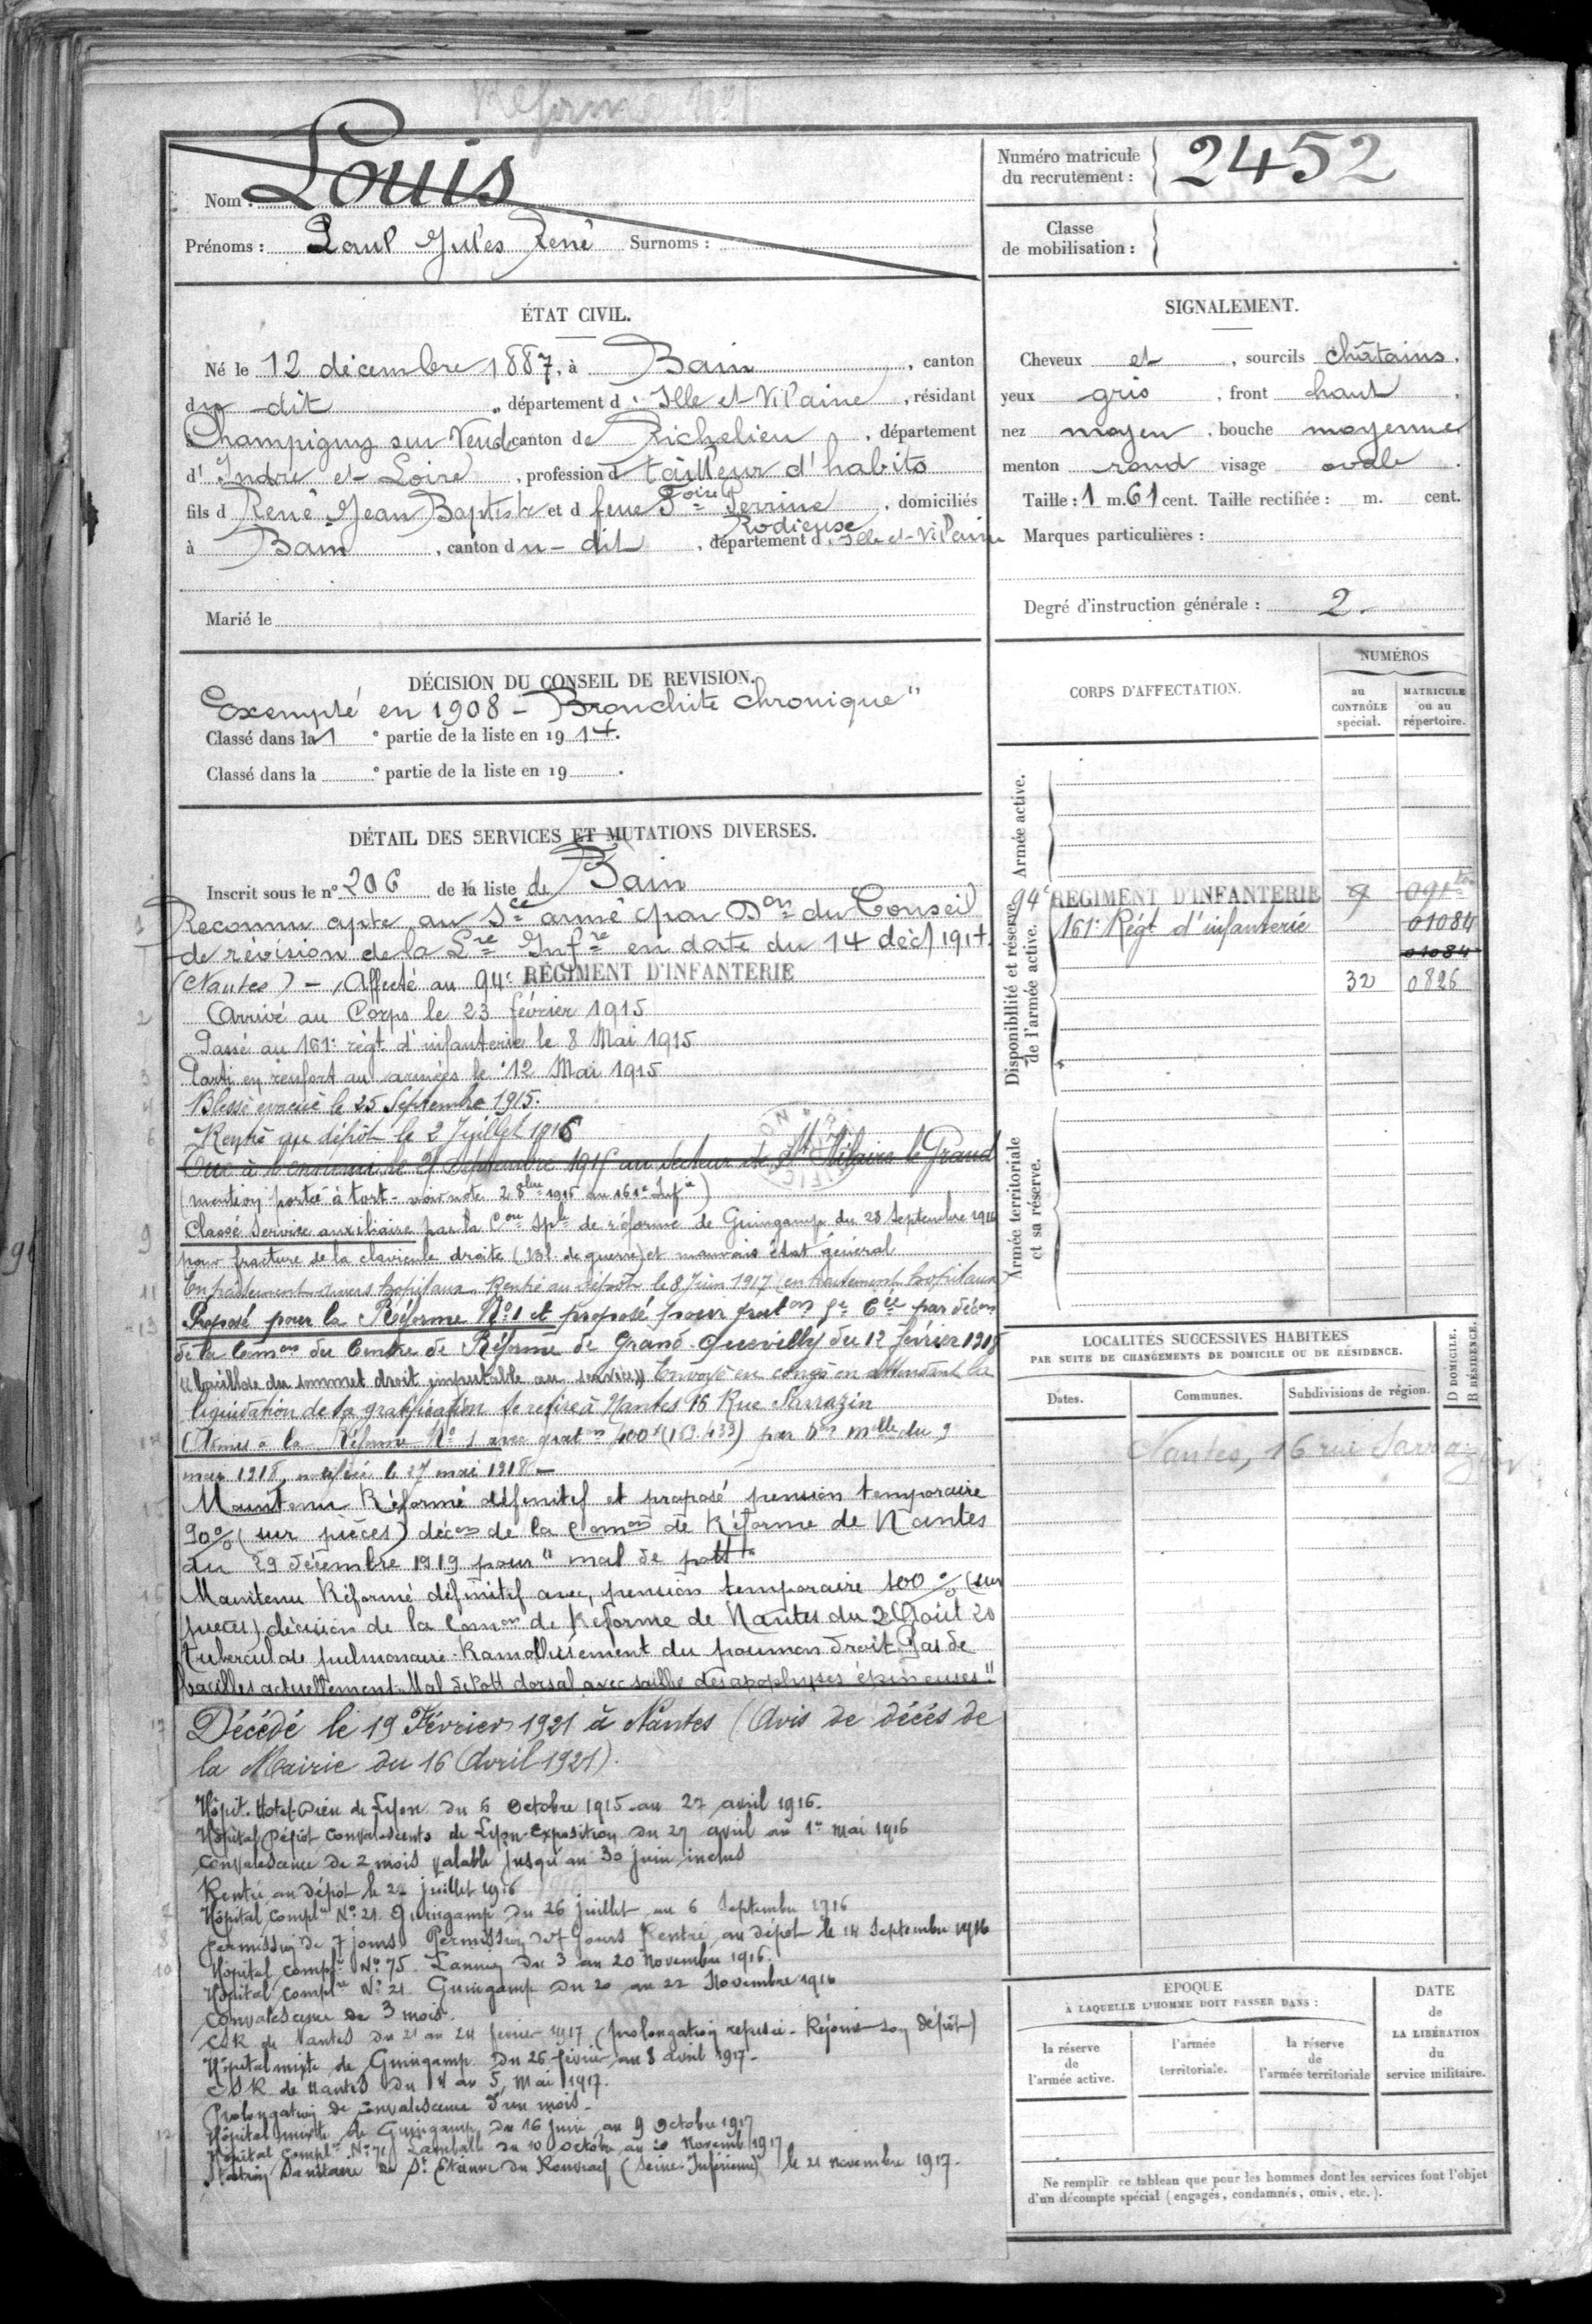 Réforme N° 1
Nom : Louis
Prénoms : Paul Jules René Surnoms :
Numéro matricule
du recrutement : 2452
Classe
de mobilisation :
ÉTAT CIVIL.
Né le 12 décembre 1887, à Bain, canton
du -dit, département d'Ille et-Vilaine, résidant
à Champigny sur Veude canton de Richelieu, département
d'Indre et-Loire, profession d tailleur d'habits
fils d René Jean Baptiste et d feue Perrine Rodieuse, domiciliés
à Bain, canton du-dit, département d'Ille-et-Vilaine
Marié le
SIGNALEMENT.
Cheveux et, sourcils châtains,
yeux gris, front haut,
nez moyen, bouche moyenne,
menton rond visage ovale.
Taille : 1 m. 61 cent. Taille rectifiée : m. cent.
Marques particulières :
Degré d'instruction générale : 2.
DÉCISION DU CONSEIL DE REVISION.
Exempté en 1908 - Bronchite chronique"
Classé dans la 1 e partie de la liste en 1914.
Classé dans la e partie de la liste en 19 .
DÉTAIL DES SERVICES ET MUTATIONS DIVERSES.
Inscrit sous le n° 206 de la liste de Bain
Reconnu apte au Sce armé par Don du Conseil
de révision de la Lre Infre en date du 14 déc 1914
(Nantes) - Affecté au 94e RÉGIMENT D'INFANTERIE
Arrivé au Corps le 23 février 1915
Passé au 161e régt d'infanterie le 8 Mai 1915
Parti en renfort au armées le 12 Mai 1915
Blessé évacué le 25 Septembre 1915.
Rentré au dépôt le 2 Juillet 1916
Tué à l'ennemi le 25 Septembre 1915 au secteur de St Hilaire le Grand
(mention portée à tort - voir note 2 8bre 1915 du 161e Infie)
Classé Service auxiliaire par la Con Sple de réforme de Guingamp du 28 Septembre 1916
pour fracture de la clavicule droite (Bl. de guerre) et mauvais état général
En traitement divers hopitaux. Rentré au dépôt le 8 Juin 1917 (en traitement hopitaux)
Proposé pour la Réforme N° 1 et proposé pour graton par décon
de la Comon du Centre de Réforme de Grand-Quevilly du 12 février 1918
"bacillose du sommet droit imputable au service" Envoyé en congé en attendant la
liquidation de sa gratification Se retire à Nantes 16 Rue Sarrazin
Admis à la Réforme N° 1 avec graton 400f (153.433) par Don mlle du 9
mai 1918, notifiée le 27 mai 1918 -
Maintenu Réformé définitif et proposé pension temporaire
90% (sur pièces) décon de la Comon de Réforme de Nantes
du 29 décembre 1919 pour "mal de pott"
Maintenu Réformé définitif avec pension temporaire 100% (sur
pièces) décision de la Comon de Réforme de Nantes du 2 Août 20
tuberculose pulmonaire. Ramollissement du poumon droit. Pas de
bacilles actuellement. Mal de Pott dorsal avec saillie des apophyses épineuses"
Décédé le 19 Février 1921 à Nantes (Avis de décès de
la Mairie du 16 Avril 1921).
Hôpit. Hotel-Dieu de Lyon du 6 Octobre 1915 au 27 avril 1916.
Hôpital Dépôt Convalescents de Lyon-Exposition du 27 avril au 1er Mai 1916
Convalescence de 2 mois valable jusqu'au 30 juin inclus
Rentré au dépôt le 2 juillet 1916
Hôpital Complre N° 21 Guingamp du 26 juillet au 6 Septembre 1916
permission de 7 jours Permission de 7 jours Rentré au dépôt le 14 Septembre 1916
Hôpital Complre N° 75 Lannion du 3 au 20 Novembre 1916.
Hôpital Complre N° 21 Guingamp du 20 au 22 Novembre 1916
Convalescence de 3 mois.
CSR de Nantes du 21 au 24 février 1917 (prolongation refusée - Rejoint son dépôt)
Hôpital mixte de Guingamp du 26 février au 8 avril 1917.
CSR de Nantes du 4 au 5 Mai 1917.
Prolongation de convalescence d'un mois.
Hôpital mixte de Guingamp du 16 Juin au 9 Octobre 1917
Hôpital Complre N° 71 Lamballe du 10 Octobre au 20 Novemb 1917
Station Sanitaire de St Etienne du Rouvray (Seine-Inférieure) le 21 novembre 1917.
CORPS D'AFFECTATION.
NUMÉROS
au CONTRÔLE spécial.
MATRICULE ou au répertoire.
Armée active.
Disponibilité et réserve de l'armée active.
94e RÉGIMENT D'INFANTERIE
161e Régt d'infanterie 01084
01084
32 0826
Armée territoriale et sa réserve.
LOCALITÉS SUCCESSIVES HABITÉES
PAR SUITE DE CHANGEMENTS DE DOMICILE OU DE RÉSIDENCE.
D DOMICILE.
R RÉSIDENCE.
Dates. Communes. Subdivisions de région.
Nantes, 16 rue Sarrazin
ÉPOQUE
À LAQUELLE L'HOMME DOIT PASSER DANS :
la réserve de l'armée active.
l'armée territoriale.
la réserve de l'armée territoriale
DATE
de
LA LIBÉRATION
du
service militaire.
Ne remplir ce tableau que pour les hommes dont les services font l'objet
d'un décompte spécial (engagés, condamnés, omis, etc.).